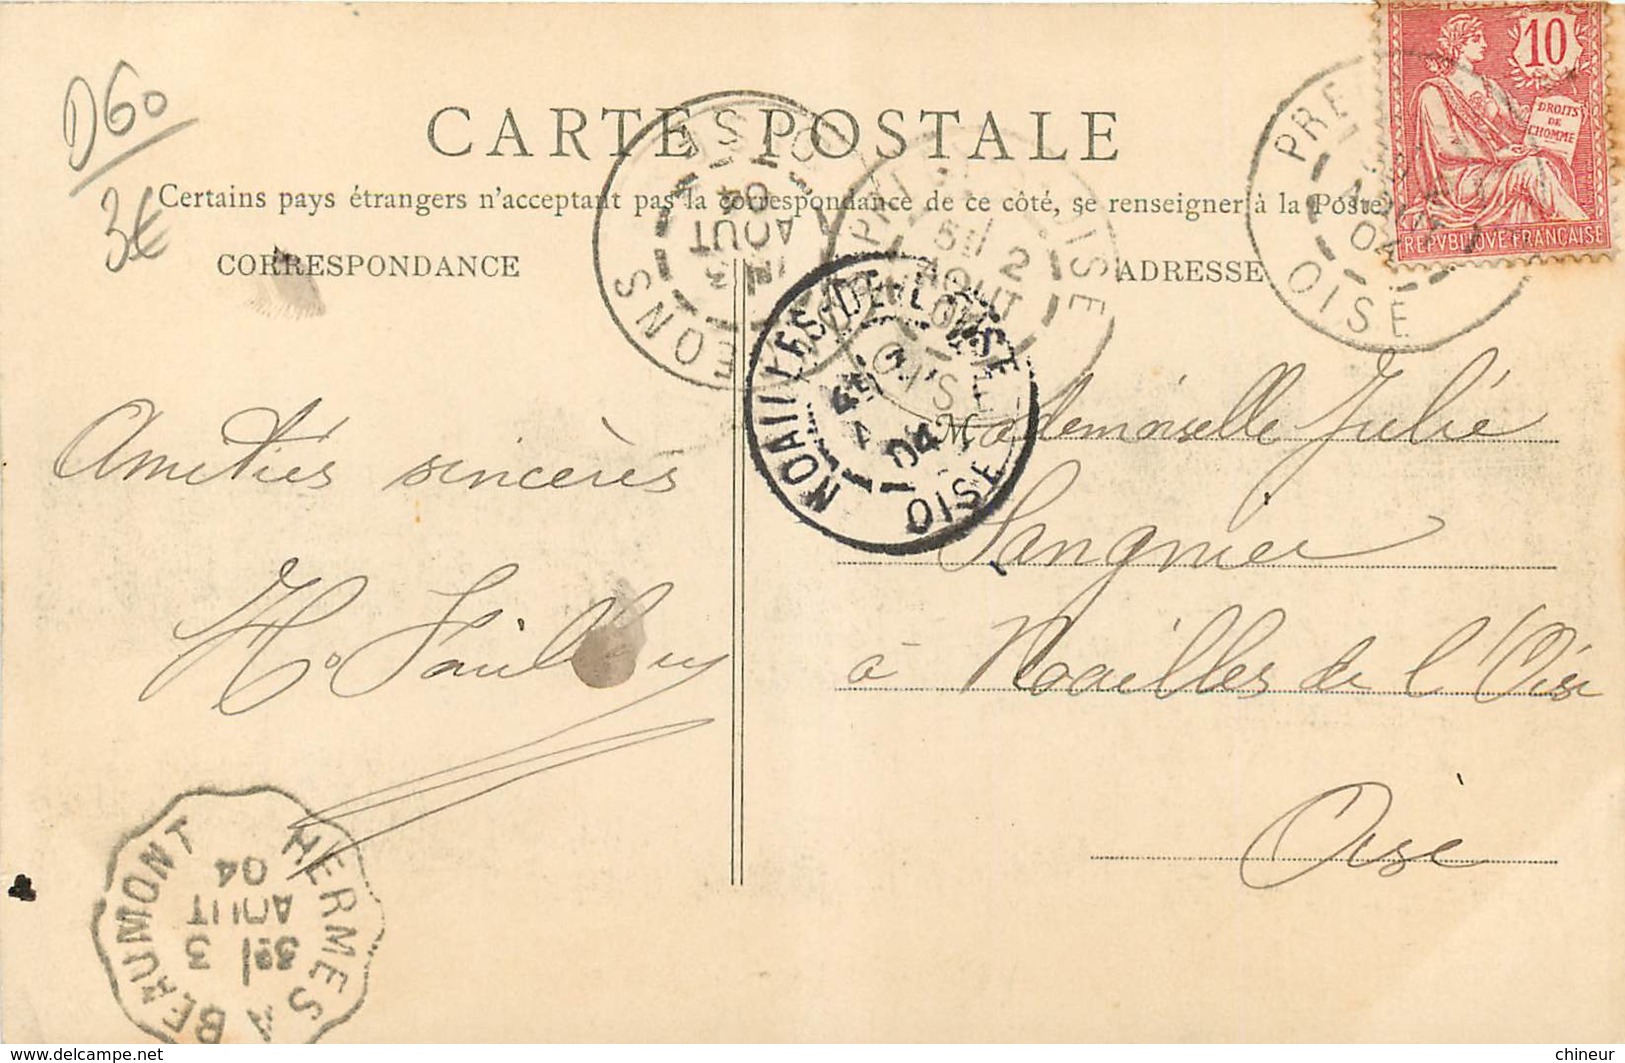 D60
3€
CARTE POSTALE
Certains pays étrangers n'acceptent pas la correspondance de ce côté, se renseigner à la Poste
CORRESPONDANCE
ADRESSE
10
DROITS
DE
L'HOMME
REPVBLIQVE FRANÇAISE
OISE
AOUT
04
OISE
2
AOUT
OISE
NOAILLES-DE-L'OISE
04
OISE
Amitiés sincères
Mademoiselle Julie
Sangnier
à Noailles de l'Oise
Oise
HERMES A BEAUMONT
3
AOUT
04
www.delcampe.net
chineur